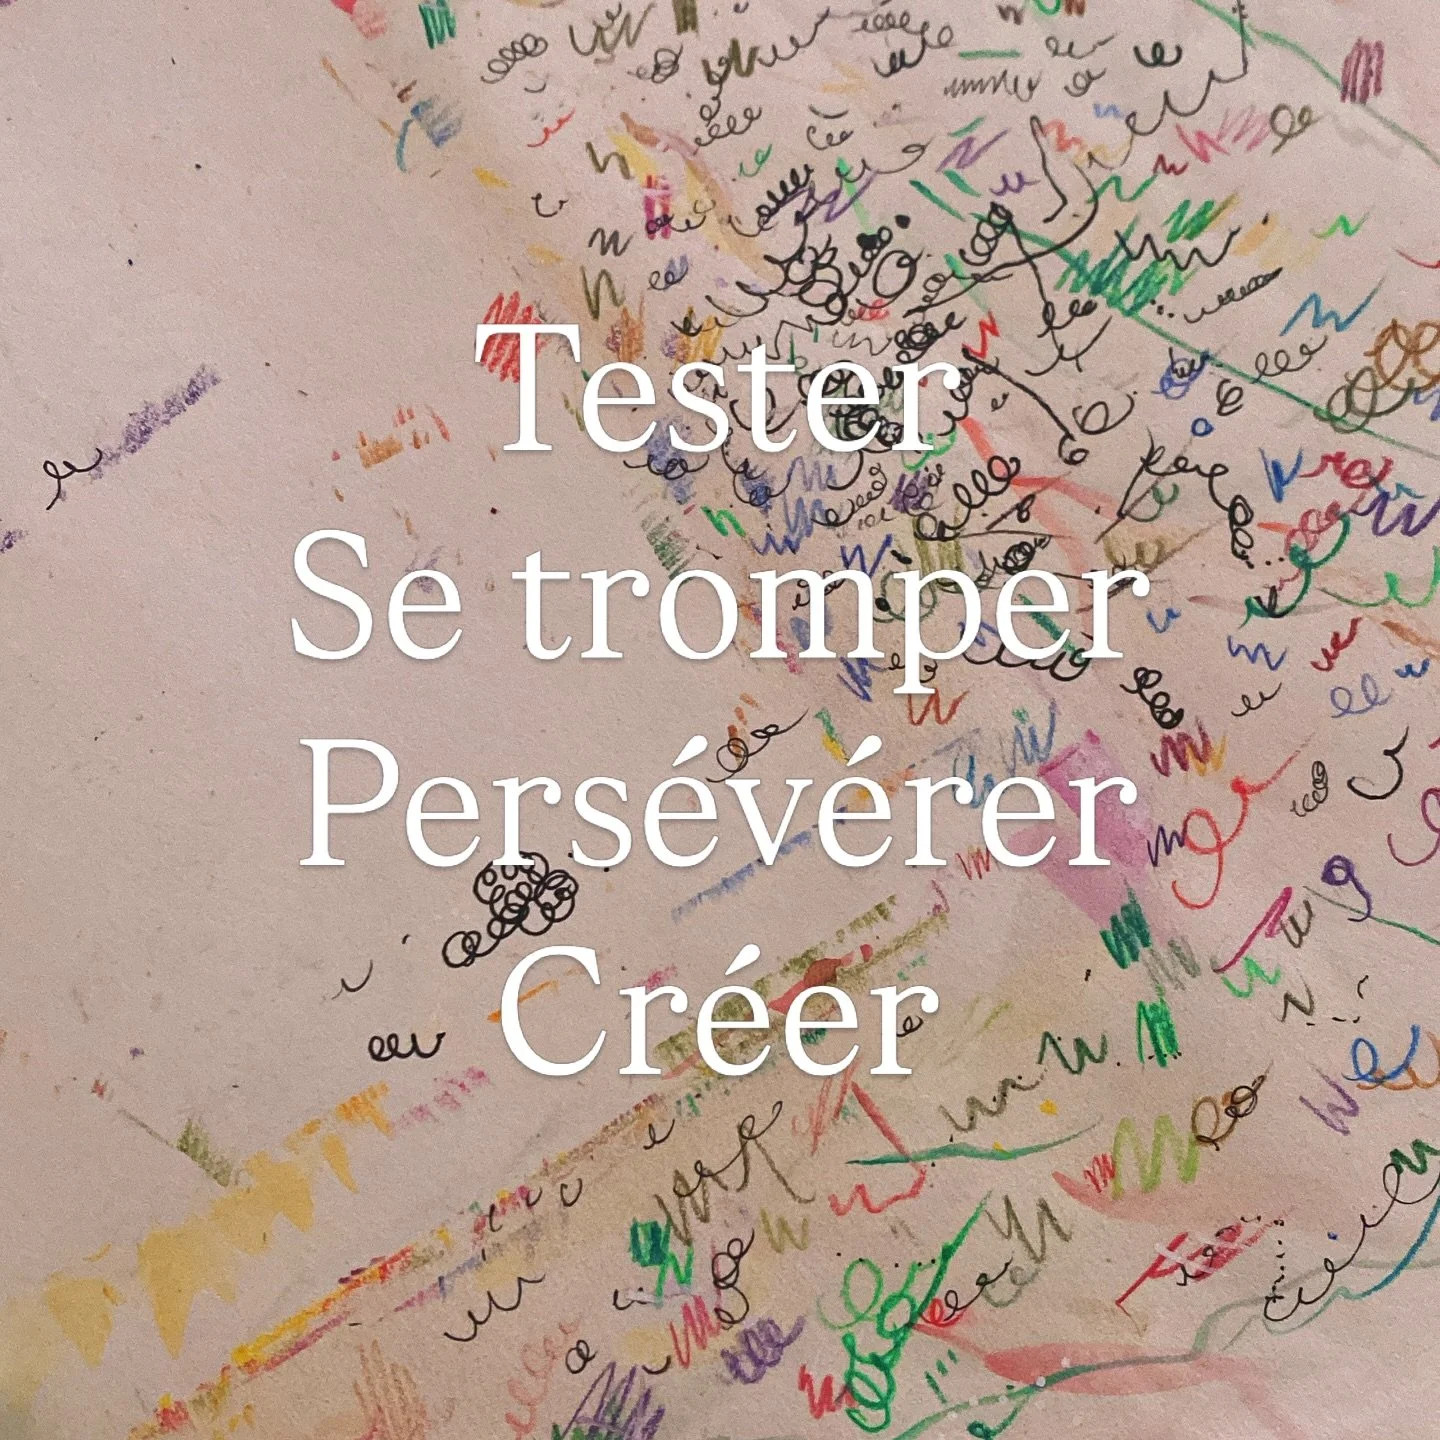 Tester
Se tromper
Persévérer
Créer